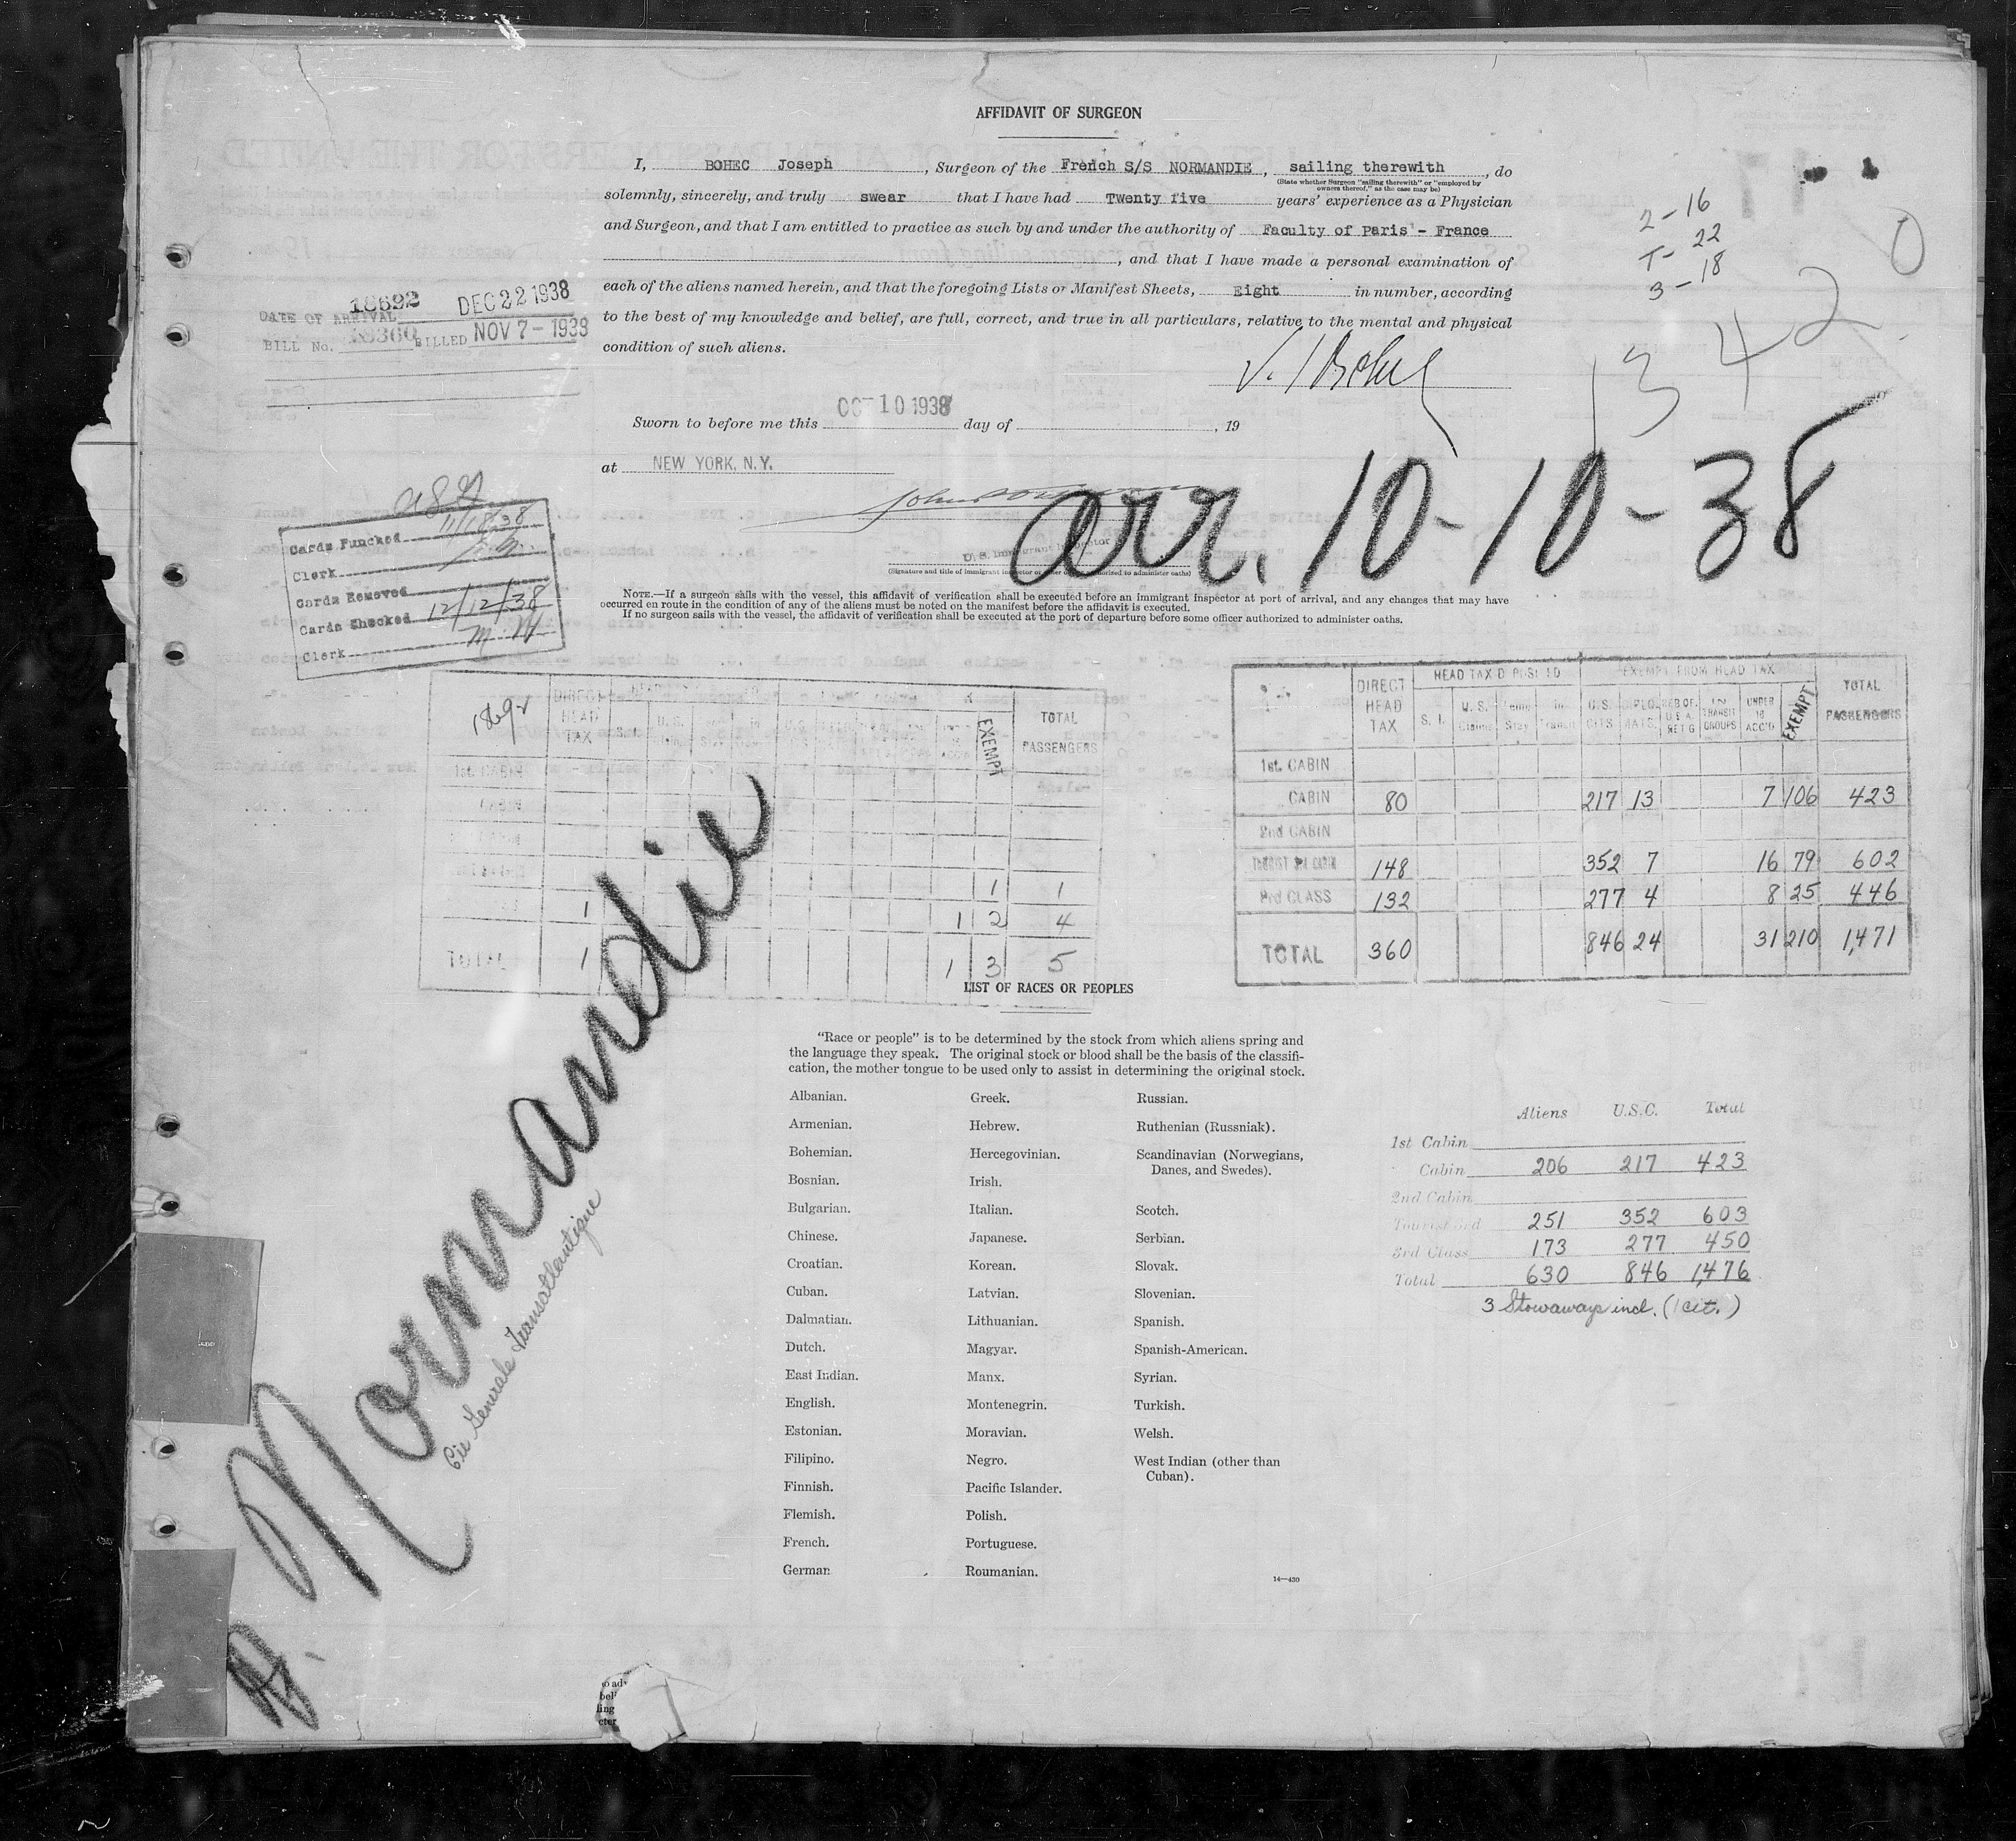 AFFIDAVIT OF SURGEON
I, BOHEC Joseph, Surgeon of the French S/S NORMANDIE, sailing therewith, do
(State whether Surgeon "sailing therewith" or "employed by
owners thereof," as the case may be)
solemnly, sincerely, and truly swear that I have had Twenty five years' experience as a Physician
and Surgeon, and that I am entitled to practice as such by and under the authority of Faculty of Paris - France
, and that I have made a personal examination of
each of the aliens named herein, and that the foregoing Lists or Manifest Sheets, Eight in number, according
to the best of my knowledge and belief, are full, correct, and true in all particulars, relative to the mental and physical
condition of such aliens.
2-16
T-22
3-18
0
1342
18692 DEC 22 1938
DATE OF ARRIVAL
BILL No. 18360 BILLED NOV 7-1938
Sworn to before me this OCT 10 1938 day of , 19
at NEW YORK, N.Y.
arr. 10-10-38
U.S. Immigrant Inspector
Cards Punched 11/18/38
Clerk
Cards Removed
Cards Checked 12/12/38
Clerk M.W.
NOTE.—If a surgeon sails with the vessel, this affidavit of verification shall be executed before an immigrant inspector at port of arrival, and any changes that may have
occurred en route in the condition of any of the aliens must be noted on the manifest before the affidavit is executed.
If no surgeon sails with the vessel, the affidavit of verification shall be executed at the port of departure before some officer authorized to administer oaths.
18692 DIRECT HEAD TAX EXEMPT TOTAL PASSENGERS
1st. CABIN
CABIN
1 1
1 1 2 4
TOTAL 1 1 3 5
DIRECT HEAD TAX HEAD TAX DEPOSITED EXEMPT FROM HEAD TAX TOTAL PASSENGERS
S. I. U. S. Temp Stay In Transit U.S. CITS. DIPLOMATS. RES OF U.S.A. RET'G IN TRANSIT GROUPS UNDER 16 ACC'D EXEMPT
1st. CABIN
CABIN 80 217 13 7 106 423
2nd CABIN
TOURIST 3rd CABIN 148 352 7 16 79 602
3rd CLASS 132 277 4 8 25 446
TOTAL 360 846 24 31 210 1,471
LIST OF RACES OR PEOPLES
"Race or people" is to be determined by the stock from which aliens spring and
the language they speak. The original stock or blood shall be the basis of the classifi-
cation, the mother tongue to be used only to assist in determining the original stock.
Albanian.
Armenian.
Bohemian.
Bosnian.
Bulgarian.
Chinese.
Croatian.
Cuban.
Dalmatian.
Dutch.
East Indian.
English.
Estonian.
Filipino.
Finnish.
Flemish.
French.
German
Greek.
Hebrew.
Hercegovinian.
Irish.
Italian.
Japanese.
Korean.
Latvian.
Lithuanian.
Magyar.
Manx.
Montenegrin.
Moravian.
Negro.
Pacific Islander.
Polish.
Portuguese.
Roumanian.
Russian.
Ruthenian (Russniak).
Scandinavian (Norwegians,
Danes, and Swedes).
Scotch.
Serbian.
Slovak.
Slovenian.
Spanish.
Spanish-American.
Syrian.
Turkish.
Welsh.
West Indian (other than
Cuban).
14—430
Aliens U.S.C. Total
1st Cabin
Cabin 206 217 423
2nd Cabin
Tourist 3rd 251 352 603
3rd Class 173 277 450
Total 630 846 1,476
3 Stowaways incl. (1 cit.)
Normandie
Cie Generale Transatlantique